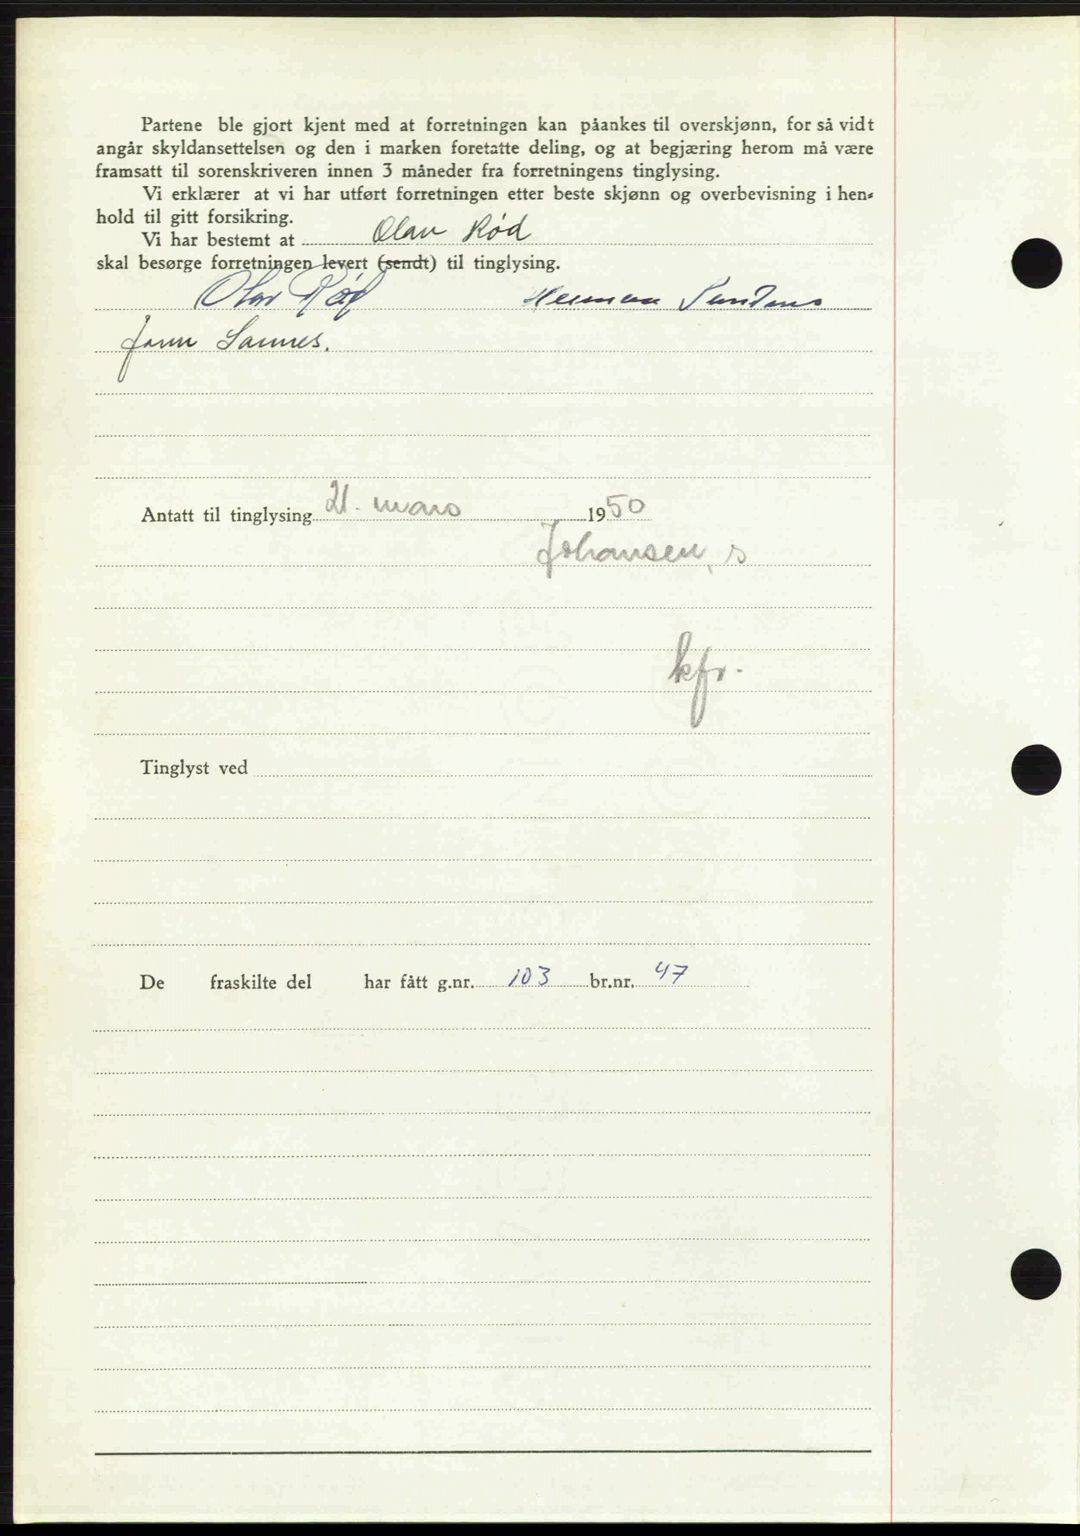 Partene ble gjort kjent med at forretningen kan påankes til overskjønn, for så vidt
angår skyldansettelsen og den i marken foretatte deling, og at begjæring herom må være
framsatt til sorenskriveren innen 3 måneder fra forretningens tinglysing.
Vi erklærer at vi har utført forretningen etter beste skjønn og overbevisning i hen-
hold til gitt forsikring.
Vi har bestemt at Olav Rød
skal besørge forretningen levert (sendt) til tinglysing.
Olav Rød Herman
Sannes.
Antatt til tinglysing 21. mars 1950
Johansen, s
kfr.
Tinglyst ved
De fraskilte del har fått g.nr. 103 br.nr. 47